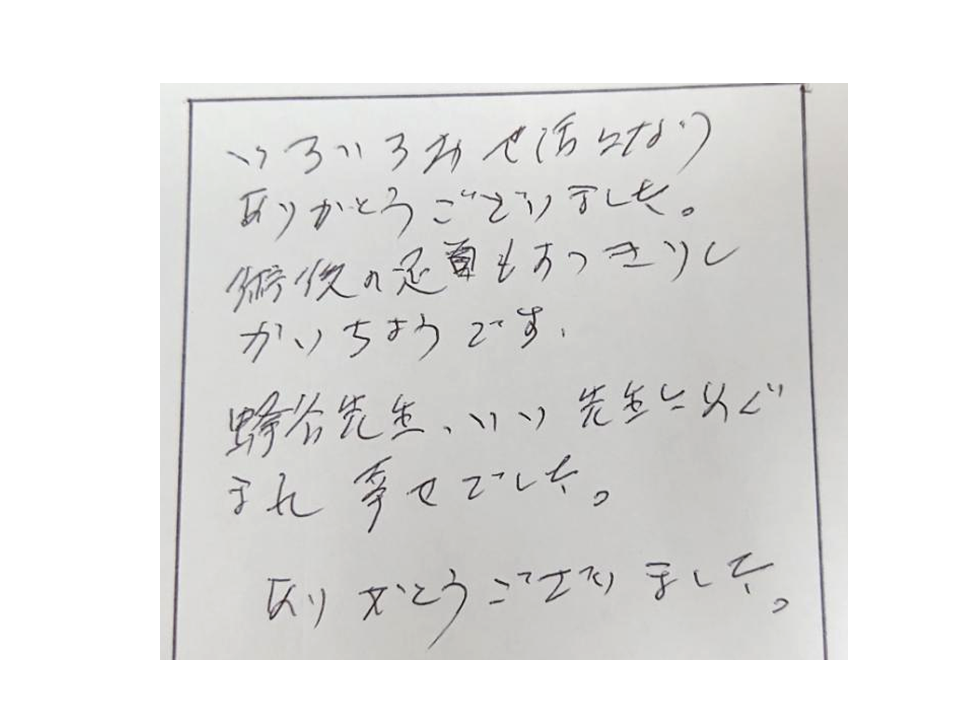 いろいろお世話になり
ありがとうございました。
術後の足首もすっきりし
かいちょうです.
蜂谷先生、いい先生にめぐ
まれ 幸せでした。
ありがとうございました。